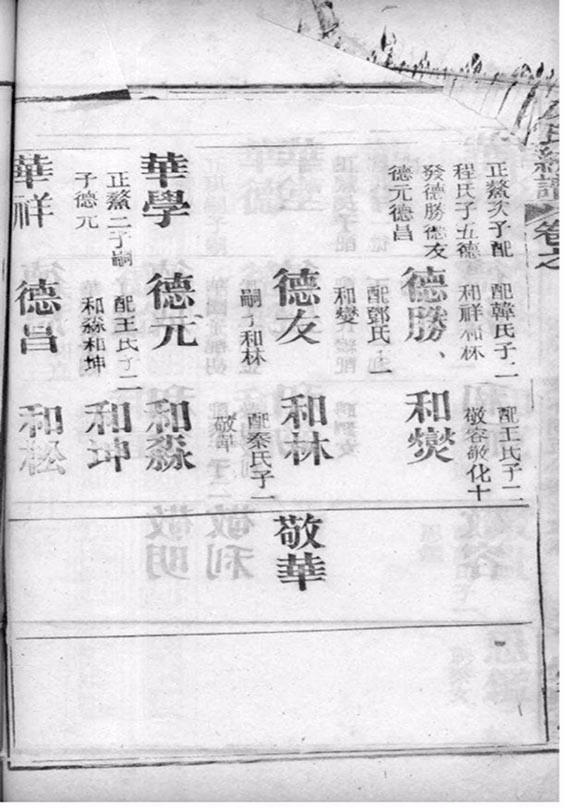 氏統譜 卷之
正鰲次子配
程氏子五德
發德勝德友
德元德昌
華學
正鰲二子嗣
子德元
華祥
配韓氏子二
和祥和林
德勝、
配鄧氏
和燮
德友
嗣子和林
德元
配王氏子二
和淼和坤
德昌
配王氏子二
敬容敬化十
和爕
和林
配秦氏子一
和淼
和坤
和松
敬華